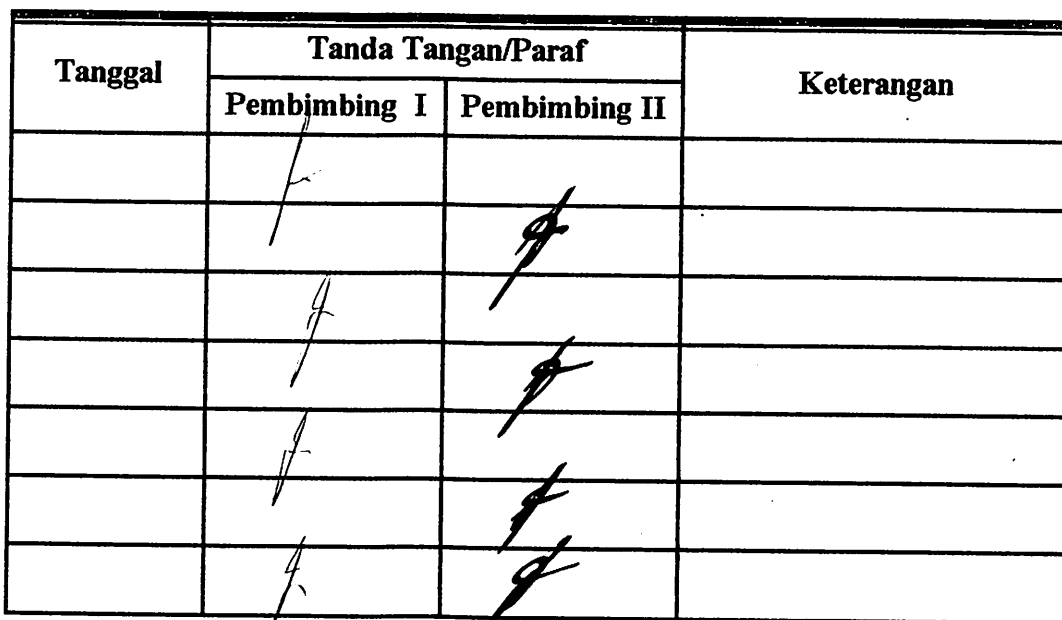 Tanggal
Tanda Tangan/Paraf
Keterangan
Pembimbing I
Pembimbing II